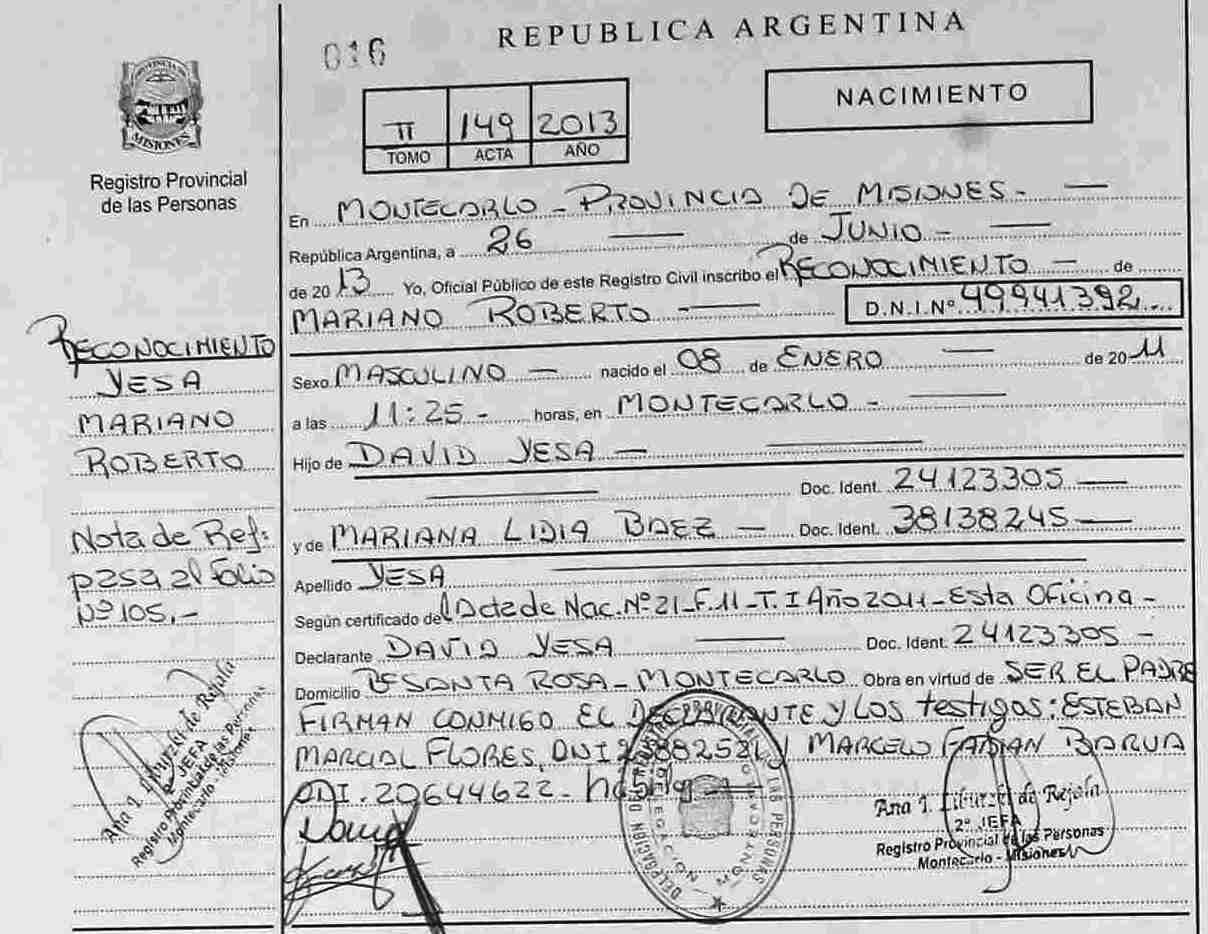 016
REPUBLICA ARGENTINA
NACIMIENTO
II 149 2013
TOMO ACTA AÑO
PROVINCIA DE
MISIONES
Registro Provincial
de las Personas
En MONTECARLO - PROVINCIA DE MISIONES -
República Argentina, a 26 de JUNIO -
de 2013 Yo, Oficial Público de este Registro Civil inscribo el RECONOCIMIENTO - de
MARIANO ROBERTO - D.N.I.Nº 49941392
Sexo MASCULINO - nacido el 08 de ENERO de 2011
a las 11:25 - horas, en MONTECARLO -
Hijo de DAVID YESA -
Doc. Ident. 24123305
y de MARIANA LIDIA BAEZ - Doc. Ident. 38138245
Apellido YESA
Según certificado del Acta de Nac. Nº 21 - F. 11 - T. I Año 2011 - Esta Oficina -
Declarante DAVID YESA Doc. Ident. 24123305 -
Domicilio Bº SANTA ROSA - MONTECARLO Obra en virtud de SER EL PADRE
FIRMAN CONMIGO EL DECLARANTE Y LOS testigos: ESTEBAN
MARCIAL FLORES, DNI y MARCELO FABIAN BARUA
DNI. 20644622 -
RECONOCIMIENTO
YESA
MARIANO
ROBERTO
Nota de Ref:
pasa al folio
Nº 105.-
Ana I. de Rejala
JEFA
Registro Provincial de las Personas
Montecarlo - Misiones
Ana I. de Rejala
2º JEFA
Registro Provincial de las Personas
Montecarlo - Misiones